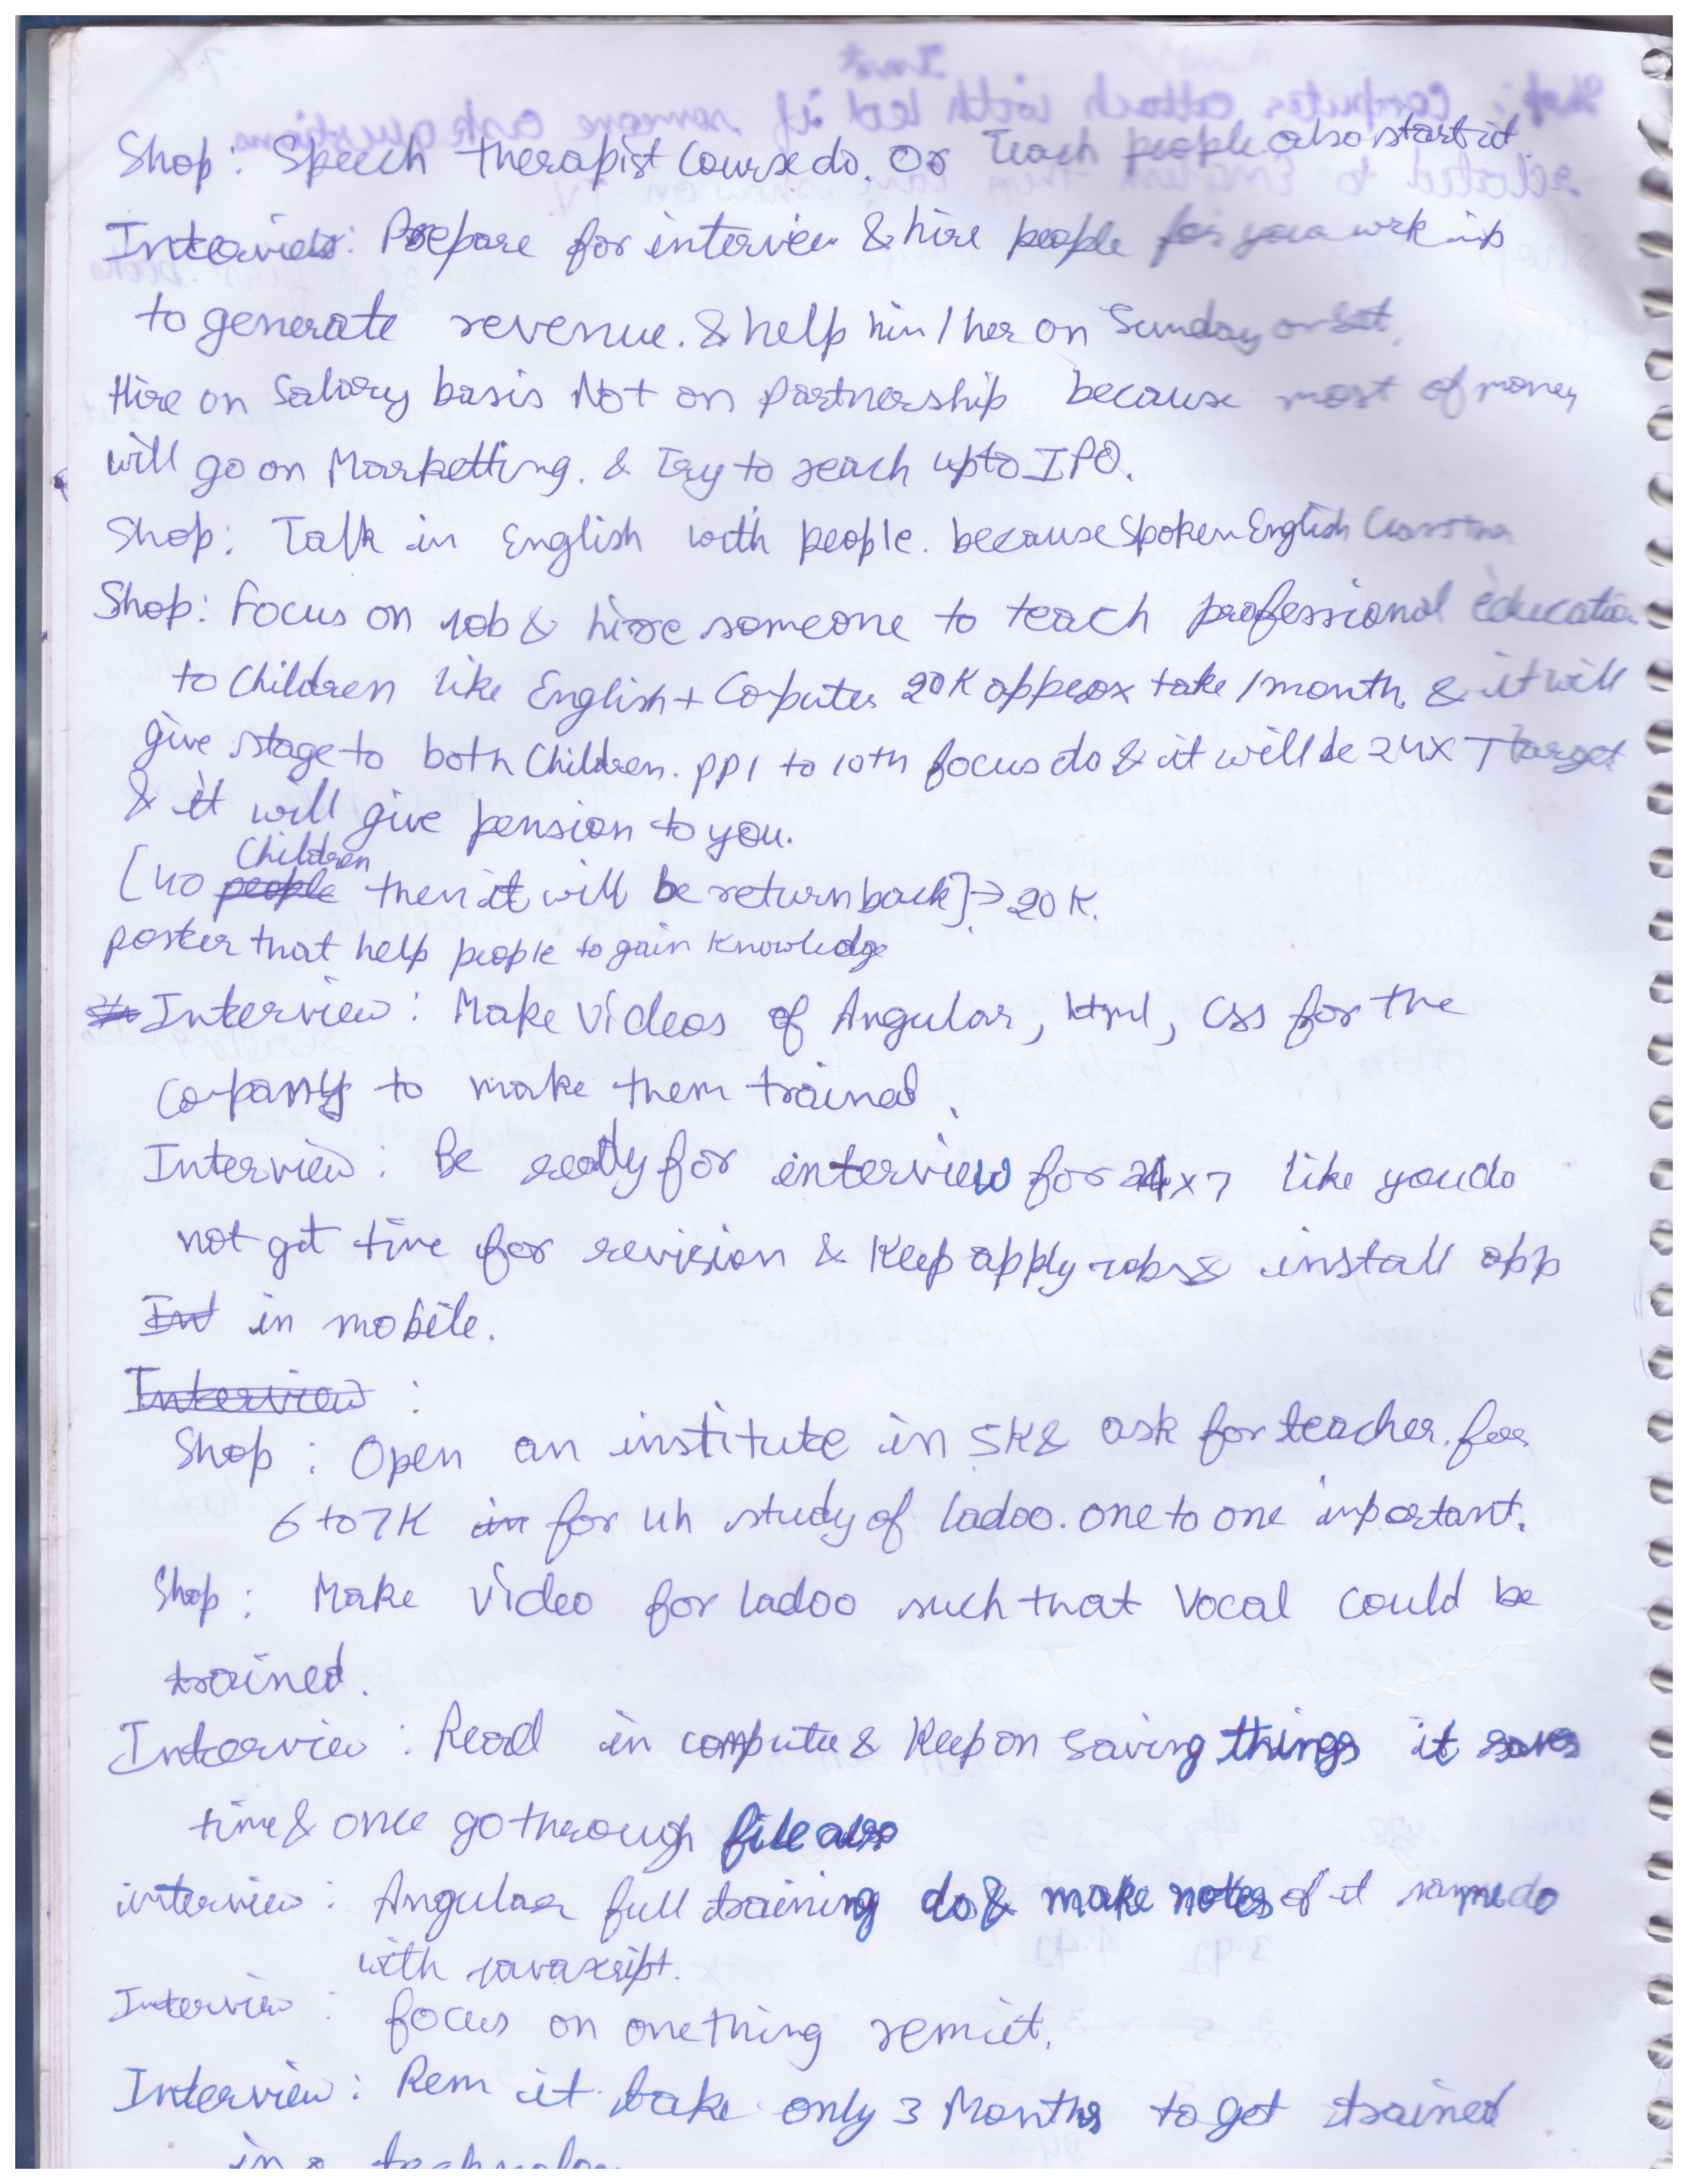 Shop: Speech therapist Course do. Or Teach people also start it.
Interview: Prepare for interview & hire people for your work
to generate revenue. & help him/her on Sunday or Sat.
Hire on Salary basis Not on partnership because most of money
will go on Marketting. & Try to reach upto IPO.
Shop: Talk in English with people. because Spoken English
Shop: Focus on Job & hire someone to teach professional education
to Children like English + Coputer 20K approx take /month. & it will
give stage to both Children. PP1 to 10th focus do & it will be 24x7 target
& it will give pension to you.
[40 people Children then it will be return back] → 20K.
poster that help people to gain knowledge
Interview: Make videos of Angular, Html, Css for the
Copany to make them trained.
Interview: Be ready for interview for 24x7 like you do
not get time for revision & Keep apply Jobs & install app
Int in mobile.
Interview :
Shop : Open an institute in 5K & ask for teacher. for
6 to 7K in for 4h study of ladoo. one to one important.
Shop : Make Video for ladoo such that Vocal could be
trained.
Interview : Read in computer & Keep on saving things it saves
time & once go through file also
interview : Angular full training do & make notes of it same do
with Javascript.
Interview : focus on one thing rem it.
Interview : Rem it take only 3 Months to get trained
in a technology